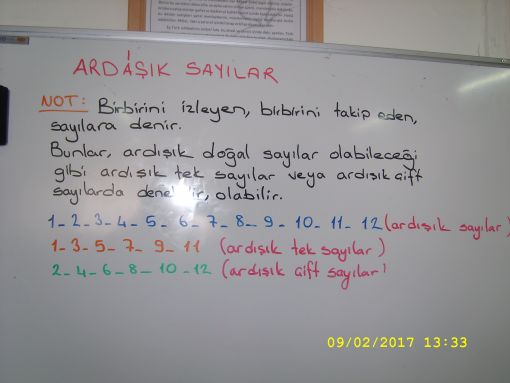 ARDAŞIK SAYILAR
NOT: Birbirini izleyen, birbirini takip eden,
sayılara denir.
Bunlar, ardışık doğal sayılar olabileceği
gibi ardışık tek sayılar veya ardışık çift
sayılarda denebilir, olabilir.
1-2-3-4-5-6-7-8-9-10-11-12 (ardışık sayılar)
1-3-5-7-9-11 (ardışık tek sayılar)
2-4-6-8-10-12 (ardışık çift sayılar)
09/02/2017 13:33